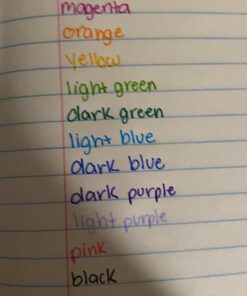 magenta
orange
yellow
light green
dark green
light blue
dark blue
dark purple
light purple
pink
black